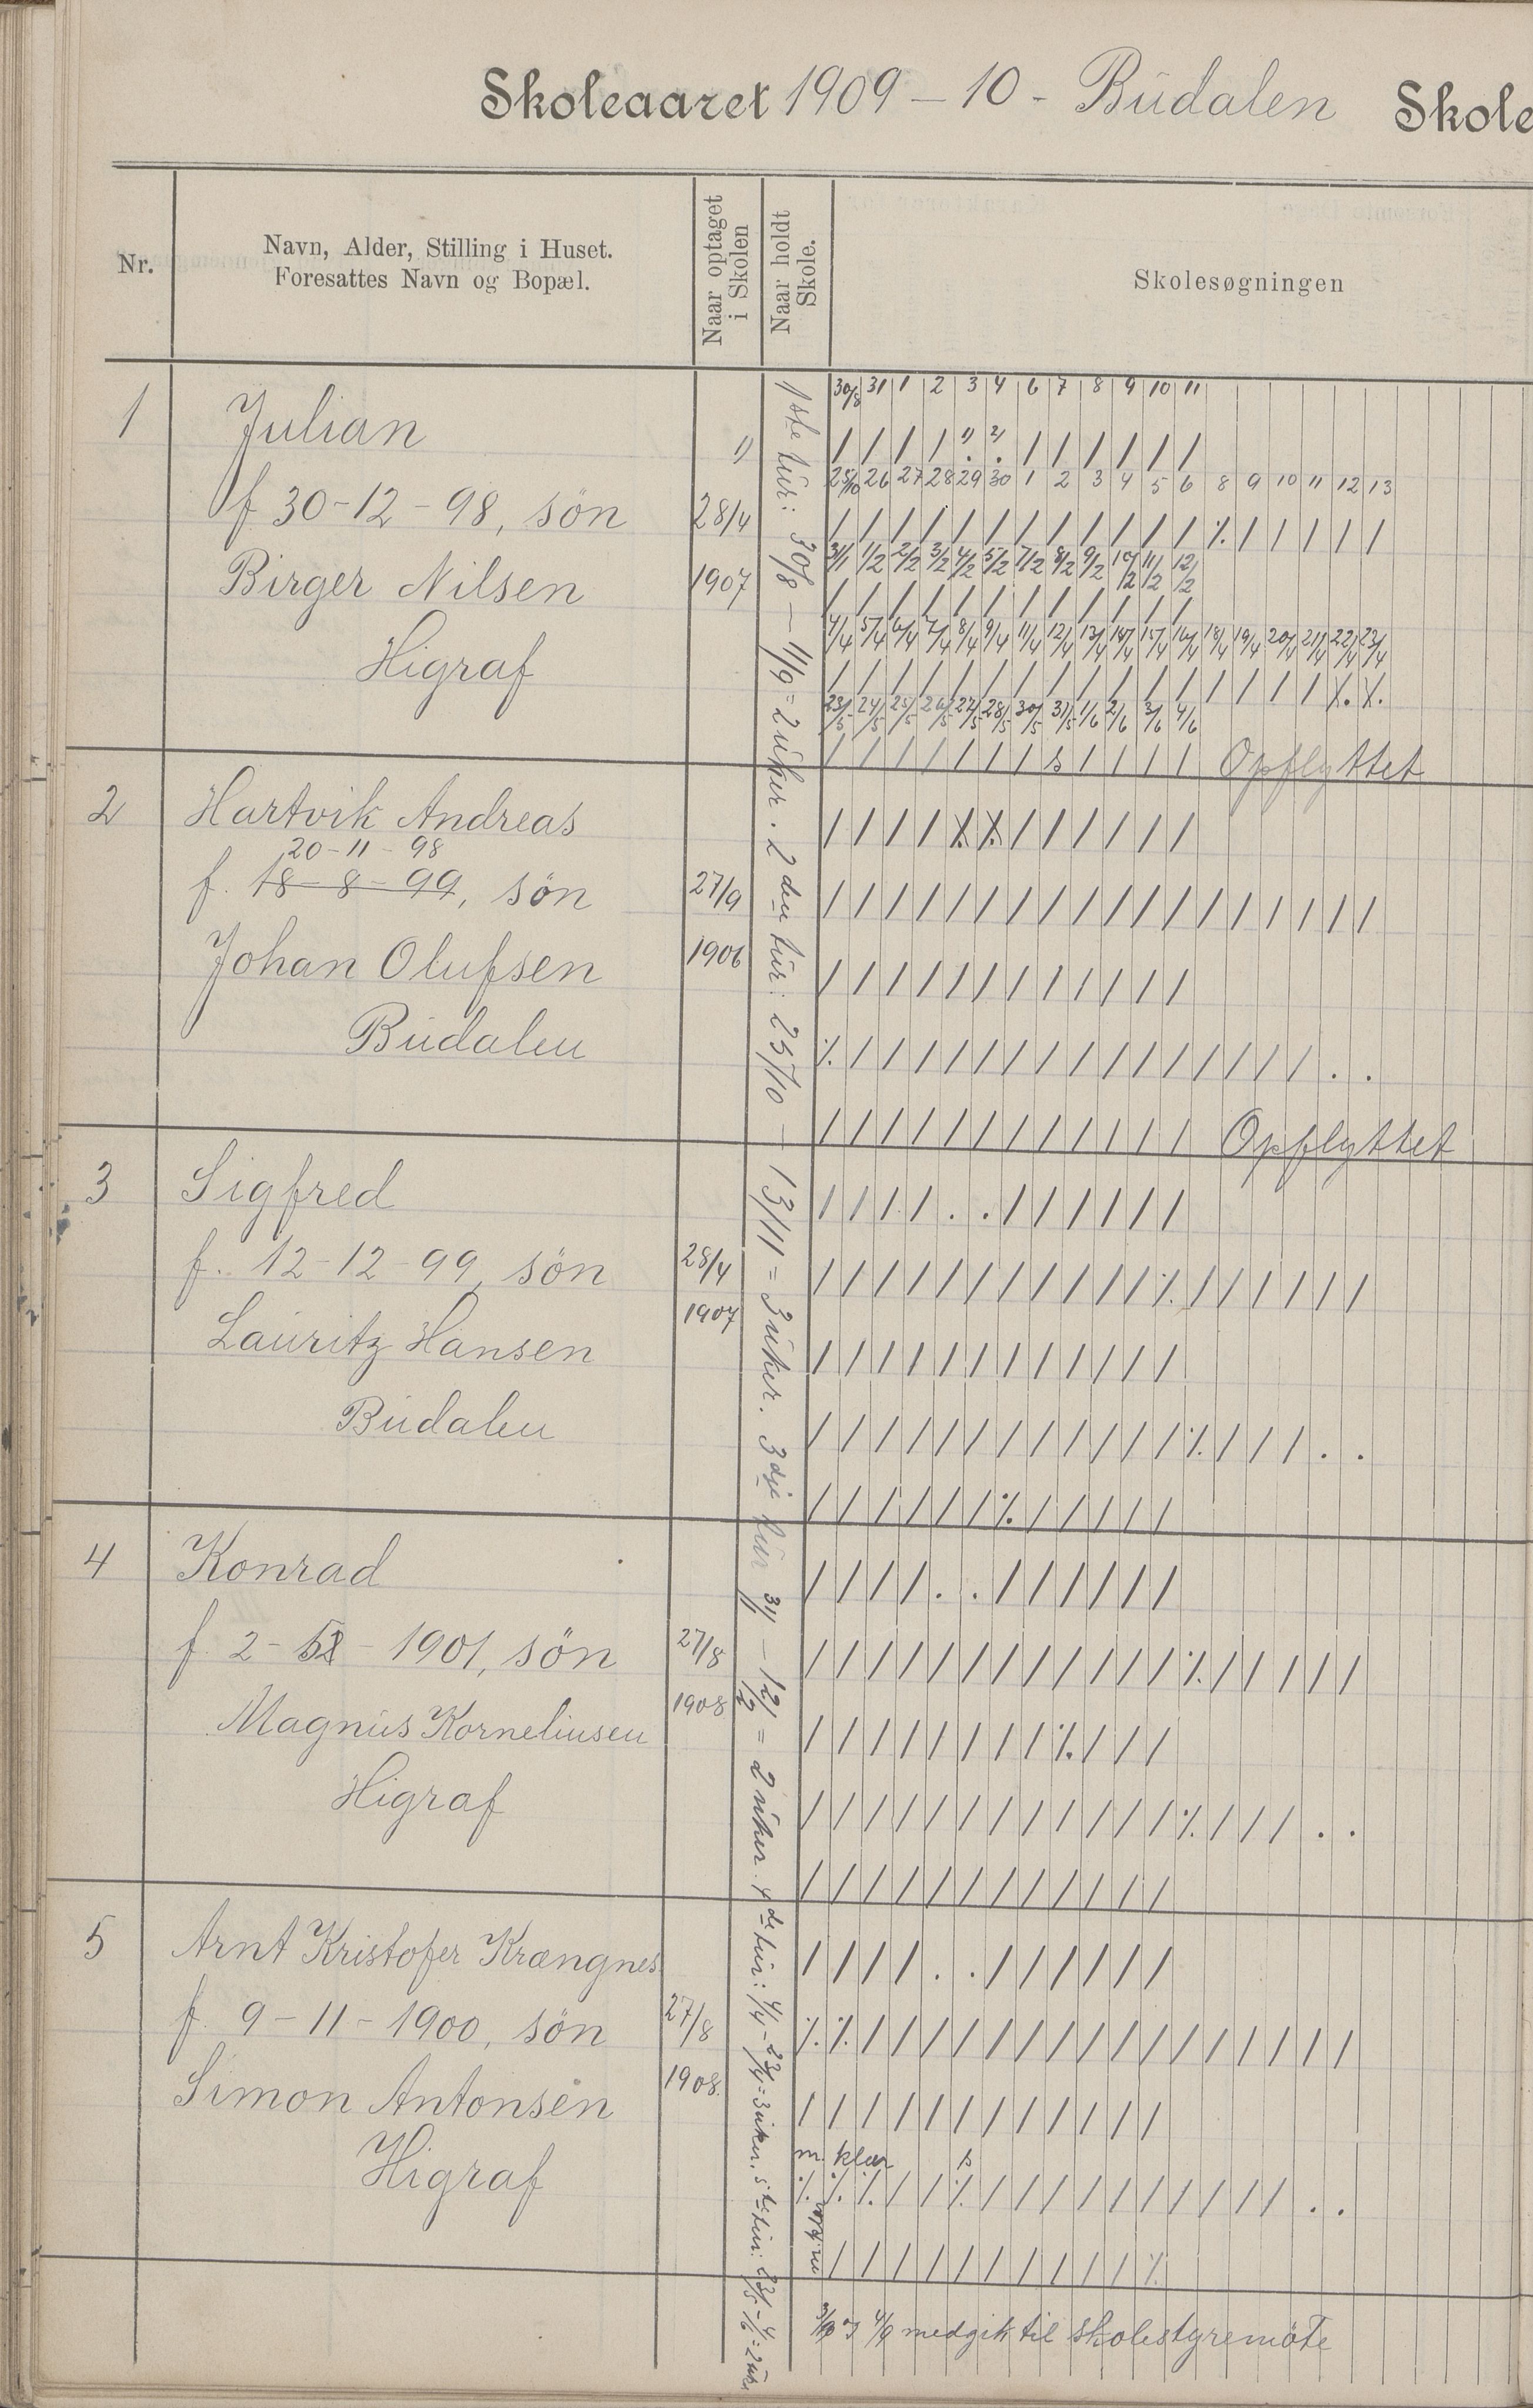 Skoleaaret 1909 – 10 - Budalen Skole
Nr.
Navn, Alder, Stilling i Huset.
Foresattes Navn og Bopæl.
Naar optaget
i Skolen
Naar holdt
Skole.
Skolesøgningen
30/8 31 1 2 3 4 6 7 8 9 10 11
1 Julian
25/10 26 27 28 29 30 1 2 3 4 5 6 8 9 10 11 12 13
f 30-12-98, søn 28/4
31/1 1/2 2/2 3/2 4/2 5/2 7/2 8/2 9/2 10/2 11/2 12/2
Birger Nilsen 1907
4/4 5/4 6/4 7/4 8/4 9/4 11/4 12/4 13/4 14/4 15/4 16/4 18/4 19/4 20/4 21/4 22/4 23/4
Higraf
23/5 24/5 25/5 26/5 27/5 28/5 30/5 31/5 1/6 2/6 3/6 4/6
Opflyttet
2 Hartvik Andreas
20-11-98
f. 18-8-99, søn 27/9
Johan Olufsen 1906
Budalen
Opflyttet
3 Sigfred
f. 12-12-99, søn 28/4
Lauritz Hansen 1907
Budalen
4 Konrad
f. 2- - 1901, søn 27/8
Magnus Korneliusen 1908
Higraf
5 Arnt Kristofer Krængnes
f. 9-11-1900, søn 27/8
Simon Antonsen 1908.
m. klær s
Higraf
1ste tur: 30/8 – 11/9 = 2 uker. 2den tur: 25/10 – 13/11 = 3 uker. 3dje tur 31/1 – 12/2 = 2 uker. 4de tur: 4/4 – 23/4 = 3 uker. 5te tur: 23/5 – 4/6 = 2 uker
3/9 og 4/9 medgik til skolestyremøte